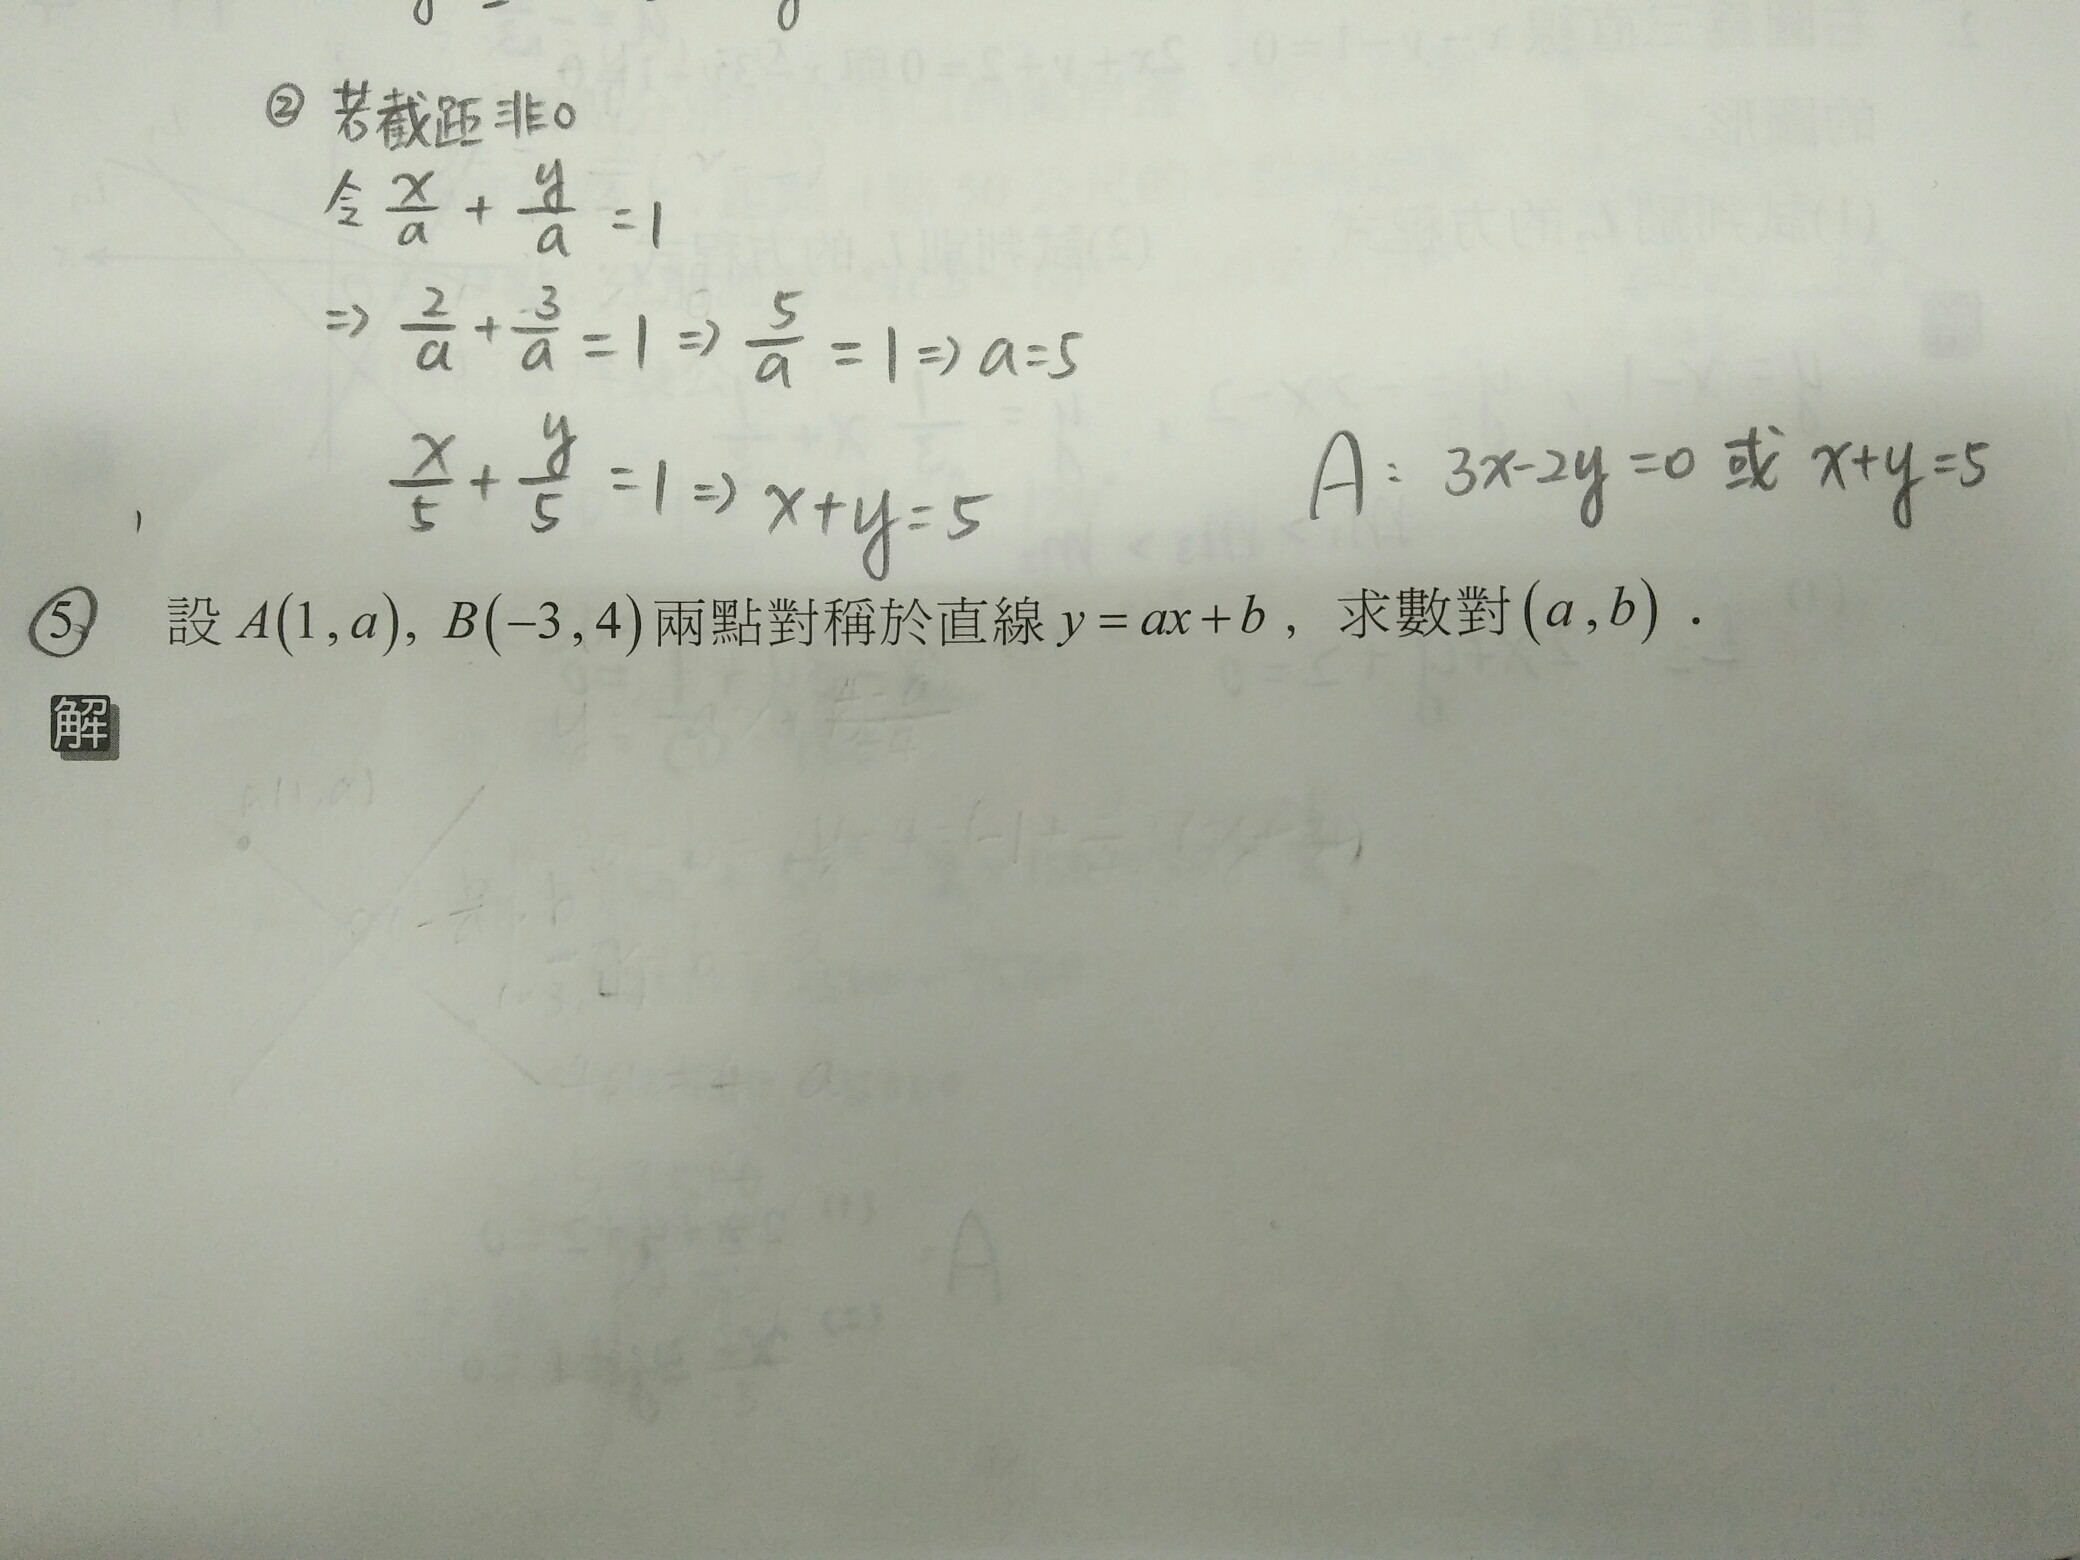 ② 若截距非0
令 x/a + y/a = 1
⇒ 2/a + 3/a = 1 ⇒ 5/a = 1 ⇒ a=5
x/5 + y/5 = 1 ⇒ x+y=5
A: 3x-2y=0 或 x+y=5
5. 設 A(1,a), B(−3,4) 兩點對稱於直線 y=ax+b, 求數對(a,b).
解